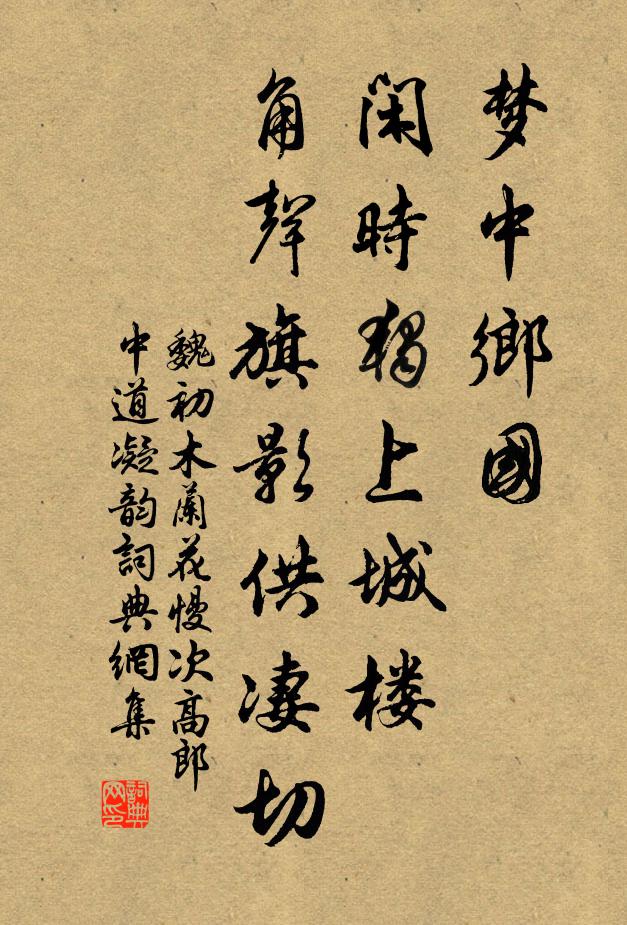 梦中鄉國
閑時獨上城楼
角聲旗影供凄切
魏初木蘭花慢次高郎
中道凝韵詞典網集
詞典
网印